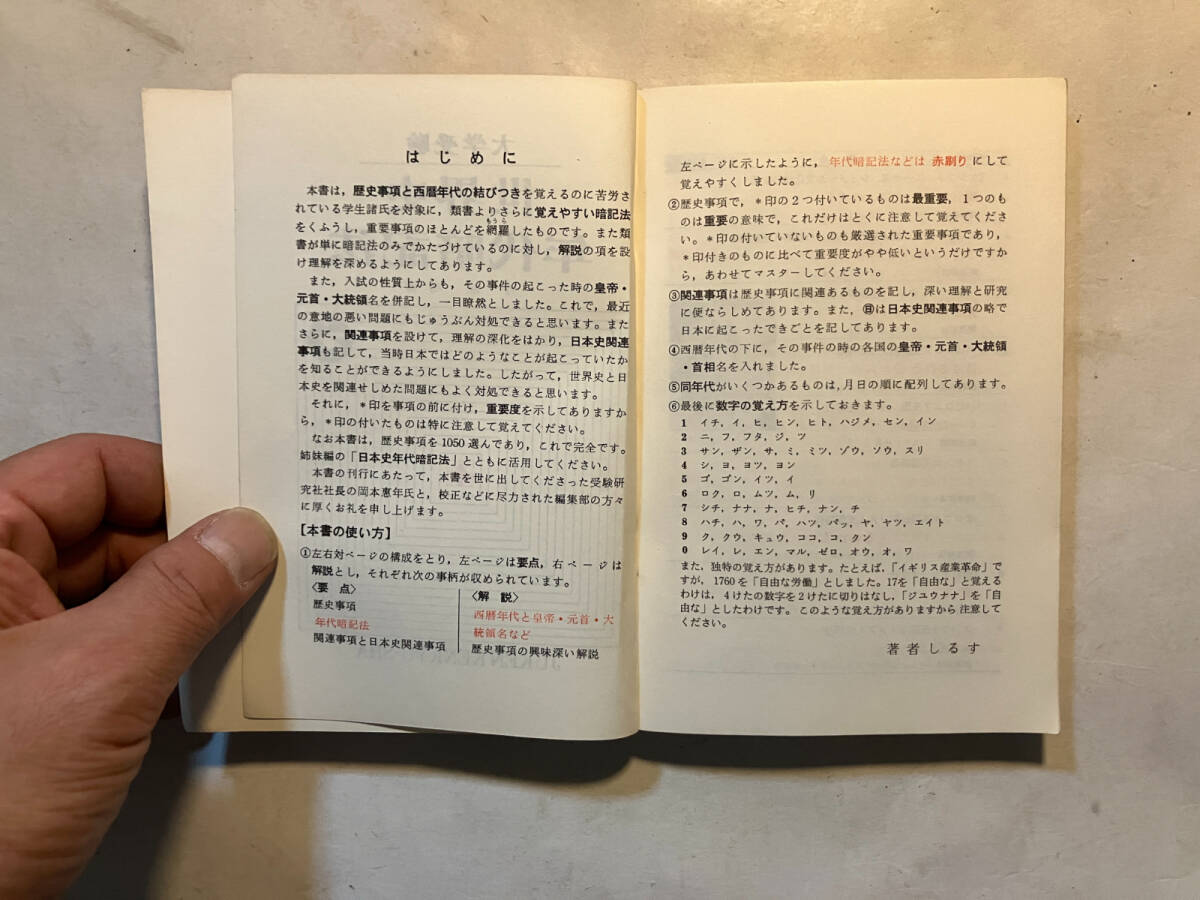 はじめに
本書は，歴史事項と西暦年代の結びつきを覚えるのに苦労さ
れている学生諸氏を対象に，類書よりさらに覚えやすい暗記法
をくふうし，重要事項のほとんどを網羅したものです。また類
もうら
書が単に暗記法のみでかたづけているのに対し，解説の項を設
け理解を深めるようにしてあります。
また，入試の性質上からも，その事件の起こった時の皇帝・
元首・大統領名を併記し，一目瞭然としました。これで，最近
の意地の悪い問題にもじゅうぶん対処できると思います。また
さらに，関連事項を設けて，理解の深化をはかり，日本史関連
事項も記して，当時日本ではどのようなことが起こっていたか
を知ることができるようにしました。したがって，世界史と日
本史を関連せしめた問題にもよく対処できると思います。
それに，＊印を事項の前に付け，重要度を示してありますか
ら，＊印の付いたものは特に注意して覚えてください。
なお本書は，歴史事項を1050選んであり，これで完全です。
姉妹編の「日本史年代暗記法」とともに活用してください。
本書の刊行にあたって，本書を世に出してくださった受験研
究社社長の岡本恵年氏と，校正などに尽力された編集部の方々
に厚くお礼を申し上げます。
［本書の使い方］
①左右対ページの構成をとり，左ページは要点，右ページは
解説とし，それぞれ次の事柄が収められています。
〈要 点〉
歴史事項
年代暗記法
関連事項と日本史関連事項
〈解 説〉
西暦年代と皇帝・元首・大
統領名など
歴史事項の興味深い解説
左ページに示したように，年代暗記法などは 赤刷り にして
覚えやすくしました。
②歴史事項で，＊印の２つ付いているものは最重要，１つのも
のは重要の意味で，これだけはとくに注意して覚えてくださ
い。＊印の付いていないものも厳選された重要事項であり，
＊印付きのものに比べて重要度がやや低いというだけですか
ら，あわせてマスターしてください。
③関連事項は歴史事項に関連あるものを記し，深い理解と研究
に便ならしめてあります。また，㊐は日本史関連事項の略で
日本に起こったできごとを記してあります。
④西暦年代の下に，その事件の時の各国の皇帝・元首・大統領
・首相名を入れました。
⑤同年代がいくつかあるものは，月日の順に配列してあります。
⑥最後に数字の覚え方を示しておきます。
1 イチ，イ，ヒ，ヒン，ヒト，ハジメ，セン，イン
2 ニ，フ，フタ，ジ，ツ
3 サン，ザン，サ，ミ，ミツ，ゾウ，ソウ，スリ
4 シ，ヨ，ヨツ，ヨン
5 ゴ，ゴン，イツ，イ
6 ロク，ロ，ムツ，ム，リ
7 シチ，ナナ，ナ，ヒチ，ナン，チ
8 ハチ，ハ，ワ，バ，ハツ，パッ，ヤ，ヤツ，エイト
9 ク，クウ，キュウ，ココ，コ，クン
0 レイ，レ，エン，マル，ゼロ，オウ，オ，ワ
また，独特の覚え方があります。たとえば，「イギリス産業革命」で
すが，1760を「自由な労働」としました。17を「自由な」と覚える
わけは，４けたの数字を２けたに切りはなし，「ジユウナナ」を「自
由な」としたわけです。このような覚え方がありますから注意して
ください。
著者しるす